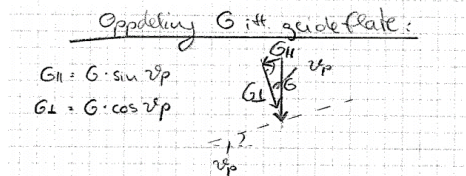 Oppdeling G ift. guideflate:
G∥ = G · sin υp
G⊥ = G · cos υp
G∥
υp
G⊥
G
υp